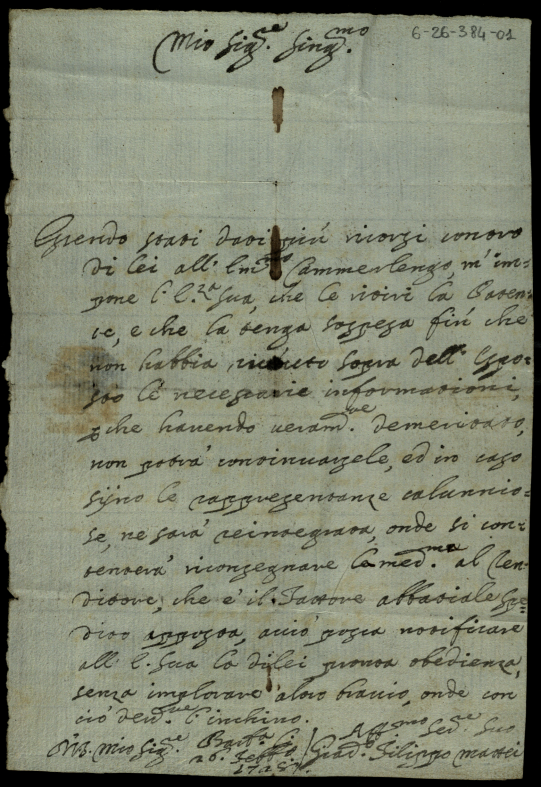 6-26-384-01
Mio Sig.re Sing.mo
Essendo stati dati più ricorsi contro
di lei all' Em.mo Cammerlengo, m'im=
pone l' E.za Sua, che le ritiri la Paten=
te, e che la tenga sospesa fin che
non habbia ricevute sopra dell' Espo=
sto le necessarie informationi,
p che havendo veram.te demeritato,
non potrà continuargliele, ed in caso
sijno le rappresentanze calunnio=
se, ne sarà reintegrata, onde si con=
tenterà riconsegnare la med.ma al
ditore, che è il Fattore abbatiale spe=
dito apposta, acciò possa notificare
all' E. Sua la di lei pronta obedienza,
senza implorare altro braccio, onde con
ciò l'inchino.
mio Sig.re 26 Sett.
Aff.mo Ser.re Suo
Filippo Mattei